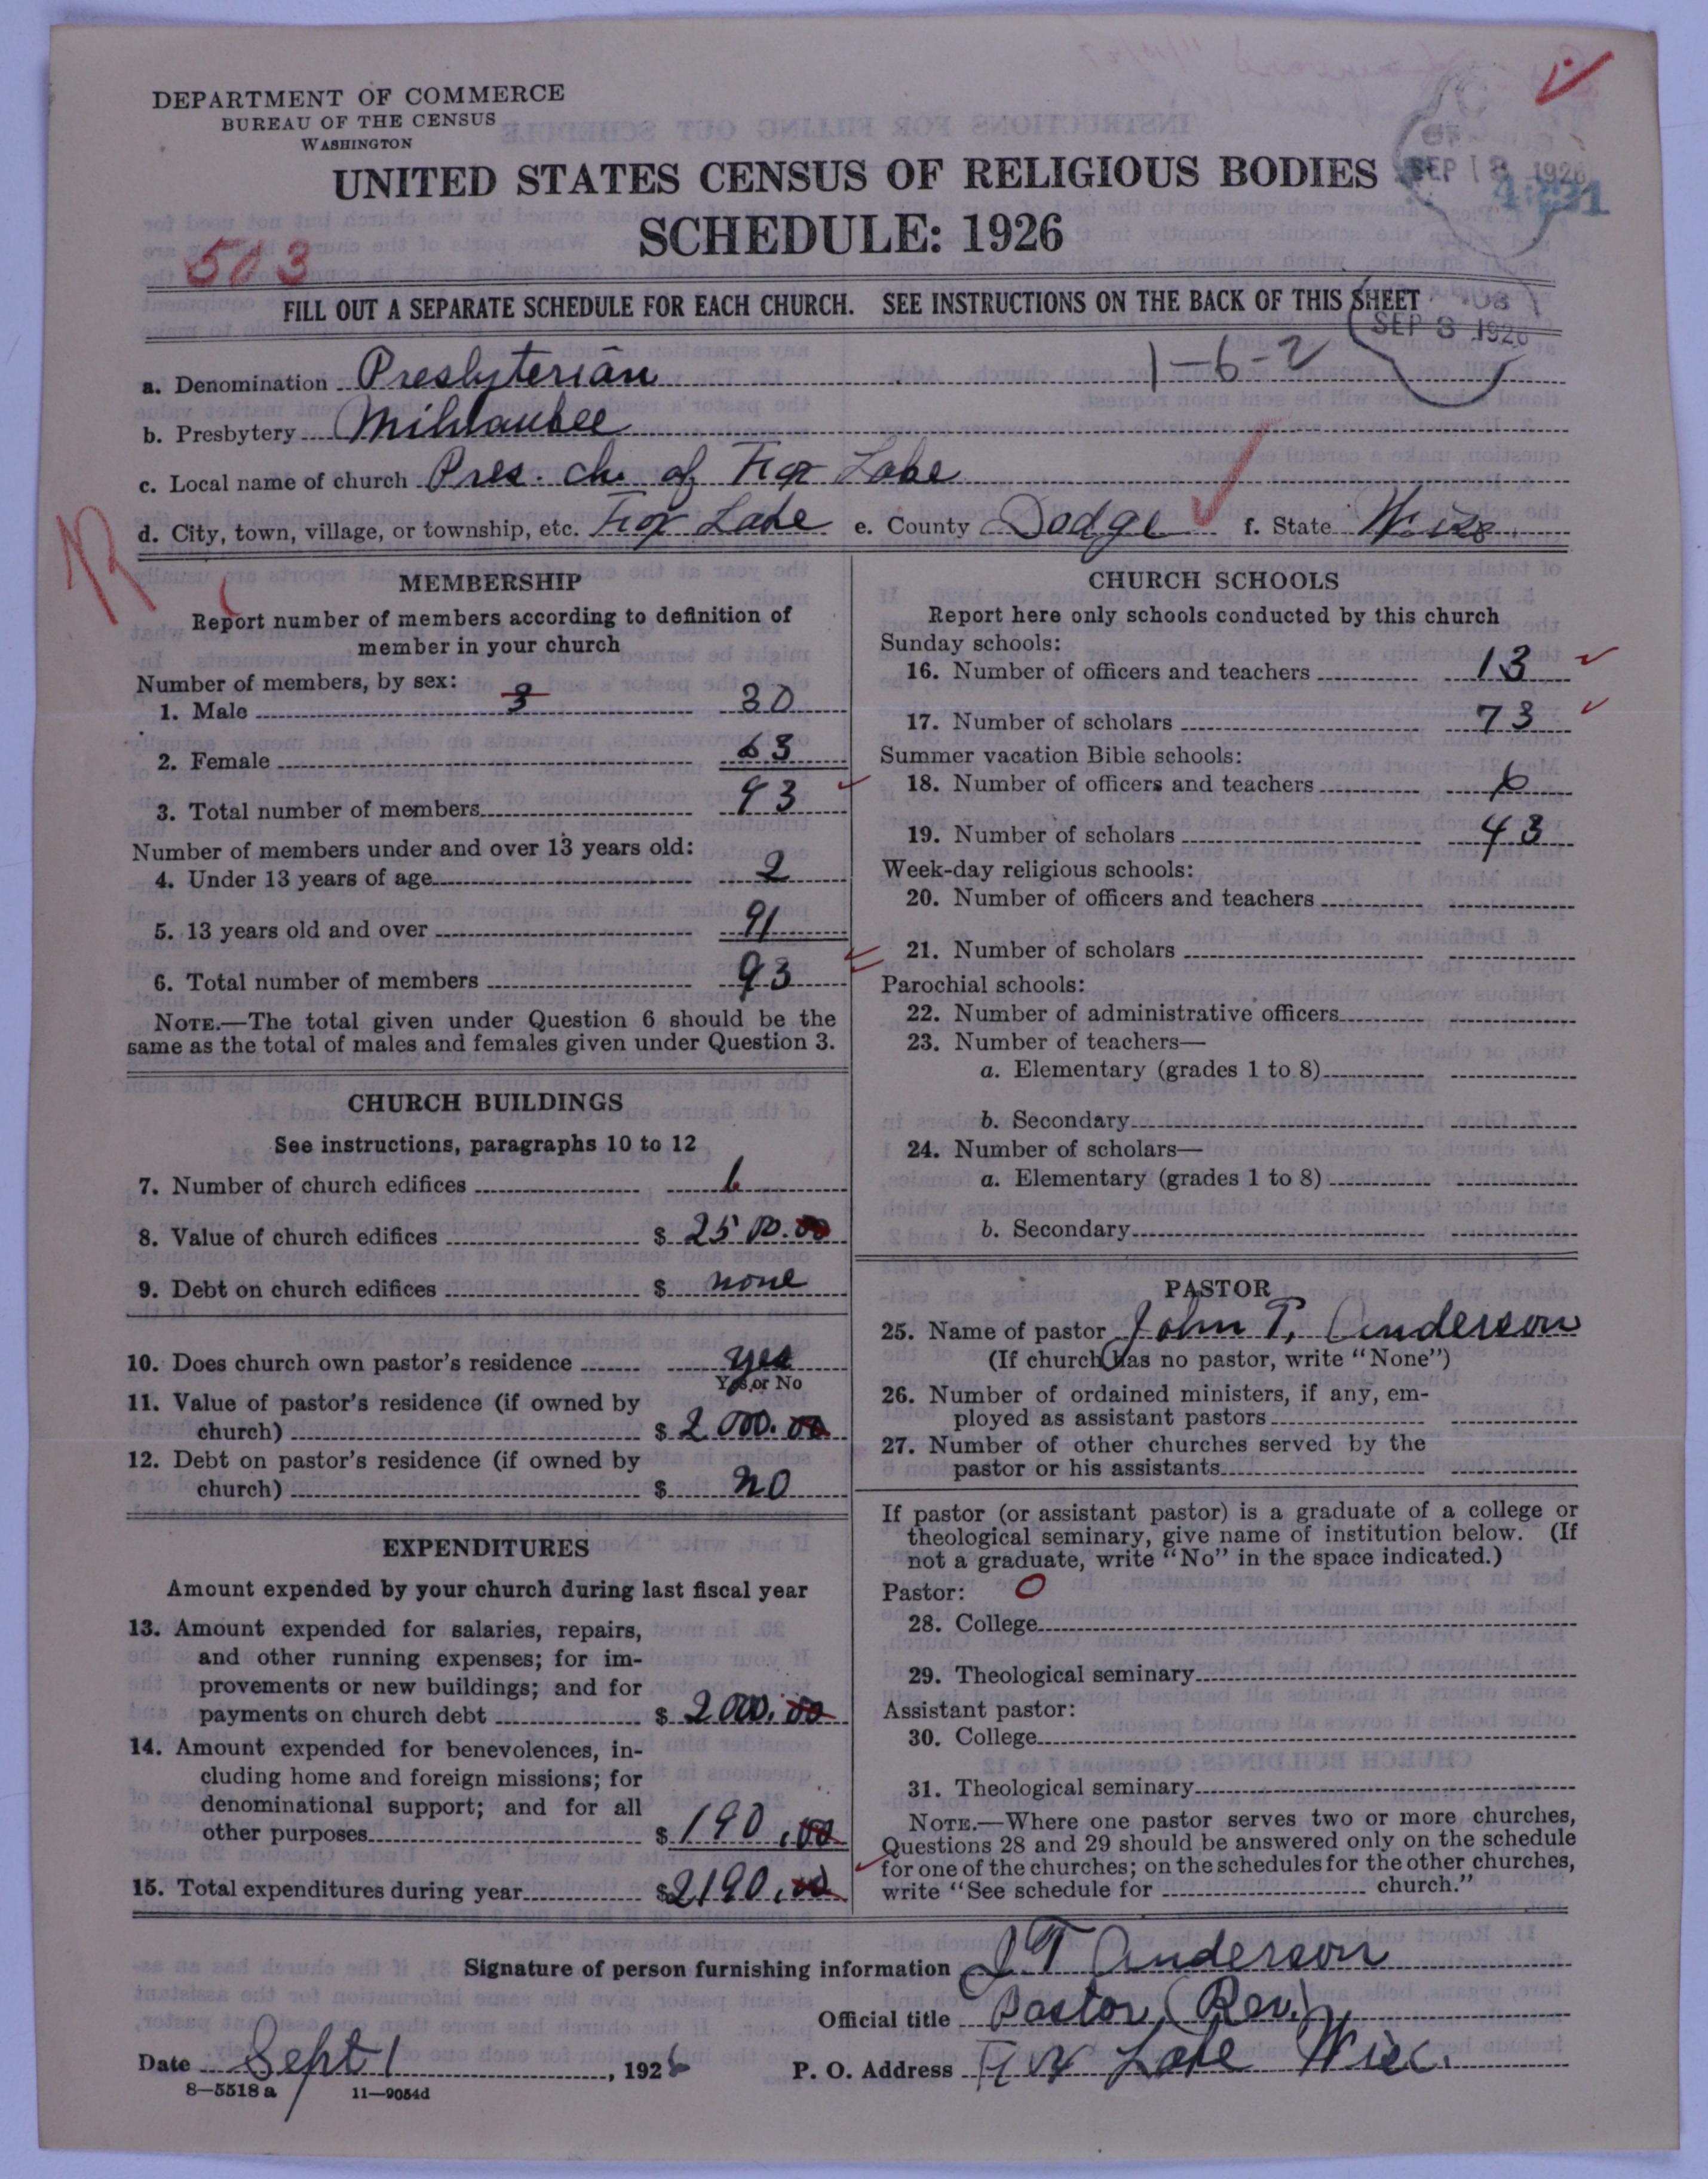 DEPARTMENT OF COMMERCE
BUREAU OF THE CENSUS
WASHINGTON
UNITED STATES CENSUS OF RELIGIOUS BODIES
SEP 18 1926
4221
SCHEDULE: 1926
503
FILL OUT A SEPARATE SCHEDULE FOR EACH CHURCH. SEE INSTRUCTIONS ON THE BACK OF THIS SHEET
SEP 3 1926
1-6-2
a. Denomination Presbyterian
b. Presbytery Milwaukee
c. Local name of church Pres. ch. of Fox Lake
d. City, town, village, or township, etc. Fox Lake e. County Dodge f. State Wisc.
MEMBERSHIP
Report number of members according to definition of
member in your church
Number of members, by sex:
1. Male 3 30
2. Female 63
3. Total number of members 93
Number of members under and over 13 years old:
4. Under 13 years of age 2
5. 13 years old and over 91
6. Total number of members 93
NOTE.—The total given under Question 6 should be the
same as the total of males and females given under Question 3.
CHURCH BUILDINGS
See instructions, paragraphs 10 to 12
7. Number of church edifices 1
8. Value of church edifices $ 2500.00
9. Debt on church edifices $ none
10. Does church own pastor's residence yes
Yes or No
11. Value of pastor's residence (if owned by
church) $ 2000.00
12. Debt on pastor's residence (if owned by
church) $ no
EXPENDITURES
Amount expended by your church during last fiscal year
13. Amount expended for salaries, repairs,
and other running expenses; for im-
provements or new buildings; and for
payments on church debt $ 2000.00
14. Amount expended for benevolences, in-
cluding home and foreign missions; for
denominational support; and for all
other purposes $ 190.00
15. Total expenditures during year $ 2190.00
CHURCH SCHOOLS
Report here only schools conducted by this church
Sunday schools:
16. Number of officers and teachers 13
17. Number of scholars 73
Summer vacation Bible schools:
18. Number of officers and teachers 6
19. Number of scholars 43
Week-day religious schools:
20. Number of officers and teachers
21. Number of scholars
Parochial schools:
22. Number of administrative officers
23. Number of teachers—
a. Elementary (grades 1 to 8)
b. Secondary
24. Number of scholars—
a. Elementary (grades 1 to 8)
b. Secondary
PASTOR
25. Name of pastor John T. Anderson
(If church has no pastor, write "None")
26. Number of ordained ministers, if any, em-
ployed as assistant pastors
27. Number of other churches served by the
pastor or his assistants
If pastor (or assistant pastor) is a graduate of a college or
theological seminary, give name of institution below. (If
not a graduate, write "No" in the space indicated.)
Pastor: O
28. College
29. Theological seminary
Assistant pastor:
30. College
31. Theological seminary
NOTE.—Where one pastor serves two or more churches,
Questions 28 and 29 should be answered only on the schedule
for one of the churches; on the schedules for the other churches,
write "See schedule for church."
Signature of person furnishing information J. T. Anderson
Official title Pastor (Rev.)
Date Sept 1, 1926 P. O. Address Fox Lake Wisc.
8—5518 a 11—9054d